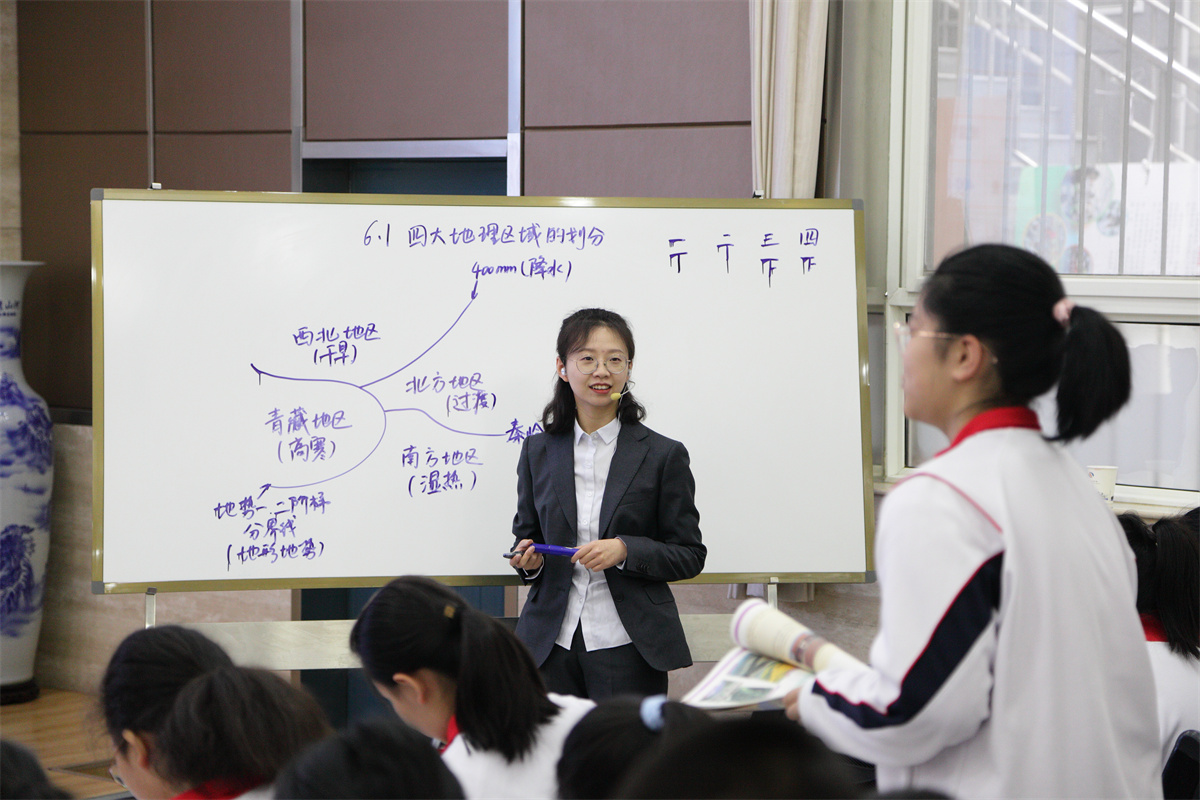 6.1 四大地理区域的划分
一 二 三 四
400mm(降水)
西北地区
(干旱)
北方地区
(过渡)
青藏地区
(高寒)
秦岭
南方地区
(湿热)
地势一、二阶梯
分界线
(地形地势)